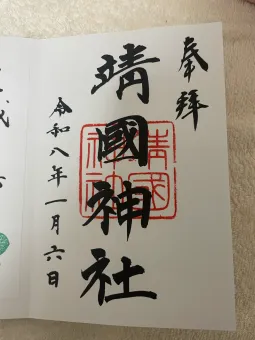 奉拝
靖國神社
靖國神社
令和八年一月六日